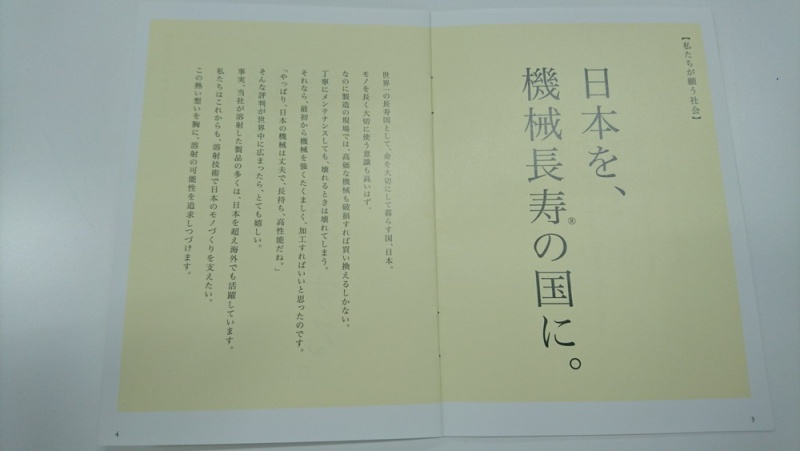 【私たちが願う社会】
日本を、
機械長寿®の国に。
世界一の長寿国として、命を大切にして暮らす国、日本。
モノを長く大切に使う意識も高いはず。
なのに製造の現場では、高価な機械も破損すれば買い換えるしかない。
丁寧にメンテナンスしても、壊れるときは壊れてしまう。
それなら、最初から機械を強くたくましく、加工すればいいと思ったのです。
「やっぱり、日本の機械は丈夫で、長持ち、高性能だね。」
そんな評判が世界中に広まったら、とても嬉しい。
事実、当社が溶射した製品の多くは、日本を超え海外でも活躍しています。
私たちはこれからも、溶射技術で日本のモノづくりを支えたい。
この熱い想いを胸に、溶射の可能性を追求しつづけます。
3
4